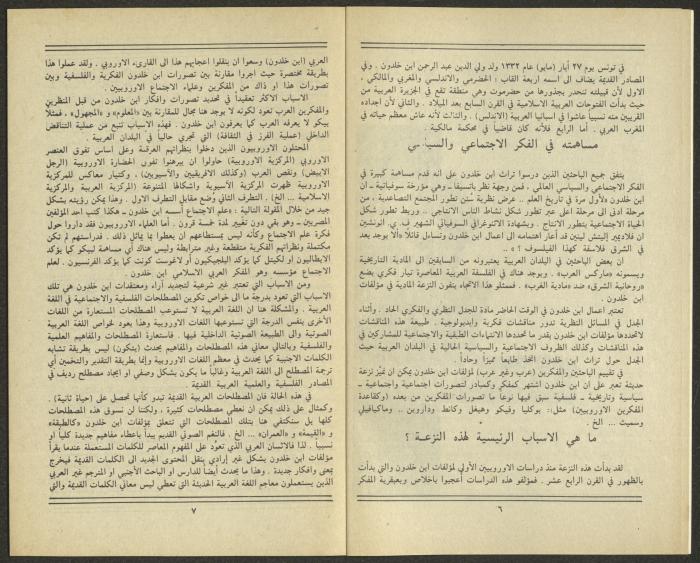 في تونس يوم ٢٧ أيار (مايو) عام ١٣٣٢ ولد ولي الدين عبد الرحمن ابن خلدون . وفي
المصادر القديمة يضاف الى اسمه اربعة القاب : الحضرمي والاندلسي والمغربي والمالكي ،
الاول لأن قبيلته تنحدر بجذورها من حضرموت وهي منطقة تقع في الجزيرة العربية من
حيث بدأت الفتوحات العربية الاسلامية في القرن السابع بعد الميلاد . والثاني لأن اجداده
القريبين منه نسبياً عاشوا في اسبانيا العربية (الاندلس) . والثالث لأنه عاش معظم حياته في
المغرب العربي . أما الرابع فلأنه كان قاضياً في محكمة مالكية .
مساهمته في الفكر الاجتماعي والسياسي
يتفق جميع الباحثين الذين درسوا تراث ابن خلدون على انه قدم مساهمة كبيرة في
الفكر الاجتماعي والسياسي العالمي ، فمن وجهة نظر باتسيفا ــ وهي مؤرخة سوفياتية ــ ان
ابن خلدون «لأول مرة في تاريخ العلم .. عرض نظرية سنن تطور المجتمع التصاعدية ، من
مرحلة ادنى الى مرحلة اعلى عبر تطور شكل نشاط الناس الانتاجي .. وربط تطور شكل
الحياة الاجتماعية بتطور الانتاج . وبشهادة الاتنوغرافي السوفياتي الشهير ف. ي. انوتشين
ان فلاديمير إليتش لينين قد أعار اهتمامه الى اعمال ابن خلدون وتساءل قائلاً «ألا يوجد بعد
في الشرق فلاسفة كهذا الفيلسوف ؟ » .
ان بعض الباحثين في البلدان العربية يعتبرونه من السابقين الى المادية التاريخية
ويسمونه «ماركس العرب» . ويوجد هناك في الفلسفة العربية المعاصرة تيار فكري يضع
«روحانية الشرق» ضد «مادية الغرب» . فممثلو هذا الاتجاه يتقون النزعة المادية في مؤلفات
ابن خلدون .
تعتبر اعمال ابن خلدون في الوقت الحاضر مادة للجدل النظري والفكري الحاد . وأثناء
الجدل في المسائل النظرية تدور مناقشات فكرية وايديولوجية . طبيعة هذه المناقشات
لاتحددها مؤلفات ابن خلدون بقدر ما تحددها الانتماءات الطبقية والاجتماعية للمشاركين في
هذه المناقشات وكذلك الظروف الاجتماعية والسياسية الحالية في البلدان العربية حيث
الجدل حول تراث ابن خلدون اتخذ طابعاً مميزاً وحاداً .
في تقييم الباحثين والمفكرين (عرب وغير عرب) لمؤلفات ابن خلدون يمكن ان نميز نزعة
حديثة تعبر على أن ابن خلدون اشتهر كمفكر وكمبادر لتصورات اجتماعية واجتماعية ــ
سياسية وتاريخية ــ فلسفية سبق فيها نوعاً ما تصورات المفكرين من بعده (وكقاعدة
المفكرين الاوروبيين) مثل: بوكليا وفيكو وهيغل وكانط وداروين .. وماكيافيلي
وسميث ... الخ .
ما هي الاسباب الرئيسية لهذه النزعة ؟
لقد بدأت هذه النزعة منذ دراسات الاوروبيين الأولى لمؤلفات ابن خلدون والتي بدأت
بالظهور في القرن الرابع عشر . فمؤلفو هذه الدراسات أعجبوا باخلاص وبعبقرية المفكر
٦
العربي (ابن خلدون) وسعوا ان ينقلوا اعجابهم هذا الى القارىء الاوروبي . ولقد عملوا هذا
بطريقة مختصرة حيث اجروا مقارنة بين تصورات ابن خلدون الفكرية والفلسفية وبين
تصورات هذا او ذاك من المفكرين وعلماء الاجتماع الاوروبيين .
الاسباب الاكثر تعقيداً في تحديد تصورات وافكار ابن خلدون من قبل المنظرين
والمفكرين العرب تعود لكونه لا يوجد هنا مجال للمقارنة بين «المعلوم» و «المجهول» . فمثلاً
بيكو لا يعرفه العرب كما يعرفون ابن خلدون . فهذه الاسباب تنبع من عملية التناقض
الداخلي (عملية الفرز في الثقافة) التي تجري حالياً في البلدان العربية .
المحتلون الاوروبيون الذين دخلوا بنظراتهم العرقية وعلى اساس تفوق العنصر
الاوروبي (المركزية الاوروبية) حاولوا ان يبرهنوا تفوق الحضارة الاوروبية (الرجل
الابيض) ونقص العرب (وكذلك الافريقيين والآسيويين) ، وكتيار معاكس للمركزية
الاوروبية ظهرت المركزية الآسيوية واشكالها المتنوعة (المركزية العربية والمركزية
الاسلامية ... الخ) . التطرف الثاني وضع مقابل التطرف الاول . وهذا يمكن رؤيته بشكل
جيد من خلال المقولة التالية : «علم الاجتماع أسسه ابن خلدون ــ هكذا كتب احد المؤلفين
المصريين ــ وهو بقي دون تغيير لمدة خمسة قرون . أما العلماء الاوروبيون فقد داروا حول
فكرة علم الاجتماع وكأنه ليس بمستطاعهم ان يعطوا بما يماثل ذلك . فدراستهم لم تكن
مكتملة ونظراتهم الفكرية متقطعة وغير مترابطة وليس هناك أي مساهمة لبيكو كما يؤكد
الايطاليون او لكيتل كما يؤكد البلجيكيون أو لاغوست كونت كما يؤكد الفرنسيون . لعلم
الاجتماع مؤسسه وهو المفكر العربي الاسلامي ابن خلدون .
ومن الاسباب التي تعتبر غير شرعية لتجديد آراء ومعتقدات ابن خلدون هي تلك
الاسباب التي تعود بدرجة ما الى خواص تكوين المصطلحات الفلسفية والاجتماعية في اللغة
العربية . والمشكلة هنا ان اللغة العربية لا تستوعب المصطلحات المستعارة من اللغات
الأخرى بنفس الدرجة التي تستوعبها اللغات الاوروبية وهذا يعود لخواص اللغة العربية
الصوتية والى الطبيعة الصوتية الداخلية فيها . فاستعارة المصطلحات والمفاهيم العلمية
والفلسفية وبالتالي معاني هذه المصطلحات والمفاهيم يحدث (يتكون) ليس بطريقة تشابه
الكلمات الاجنبية كما يحدث في معظم اللغات الاوروبية وإنما بطريقة التقدير والتخمين أي
ترجمة المصطلح الى اللغة العربية وغالباً ما يكون بشكل وصفي او ايجاد مصطلح رديف في
المصادر الفلسفية والعلمية العربية القديمة .
في هذه الحالة فان المصطلحات العربية القديمة تبدو كأنها تحصل على (حياة ثانية) .
وكمثال على ذلك يمكن ان نعطي مصطلحات كثيرة ، ولكننا لن نسوق هذه المصطلحات
كلها بل سنكتفي هنا بتلك المصطلحات التي تتعلق بمؤلفات ابن خلدون «كالطبقة»
و «القيمة» و «العمران» ... الخ . فالنغم الصوتي القديم يبدأ باعطاء مفاهيم جديدة كلياً او
نسبياً . لذا فالانسان العربي الذي تعوّد على المفهوم المعاصر للكلمات المستعملة عندما يقرأ
مؤلفات ابن خلدون بشكل غير إرادي ينقل المحتوى الجديد الى الكلمات القديمة فيخرج
بمعنى وافكار جديدة . وهذا ما يحدث أيضاً للدارس او الباحث الأجنبي او المترجم غير العربي
الذين يستعملون معاجم اللغة العربية الحديثة التي تعطي ليس معاني الكلمات القديمة والتي
٧